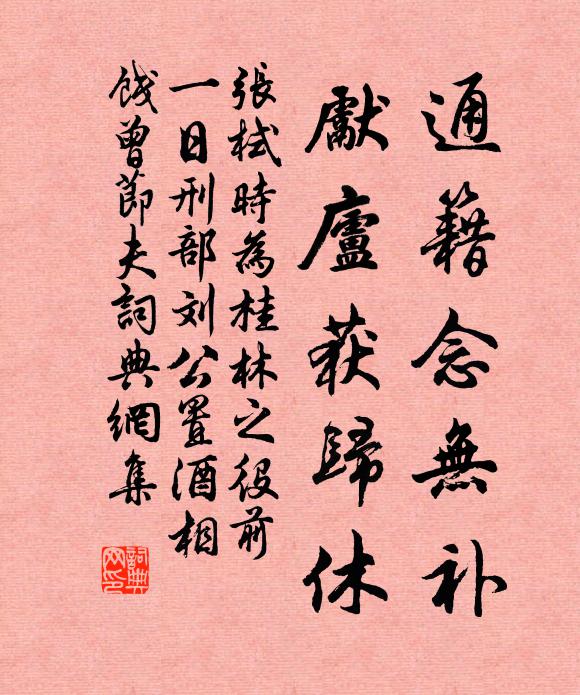 通籍念無补
獻廬获歸休
張栻時為桂林之役前
一日刑部刘公置酒相
餞曾節夫詞典網集
詞典
网印